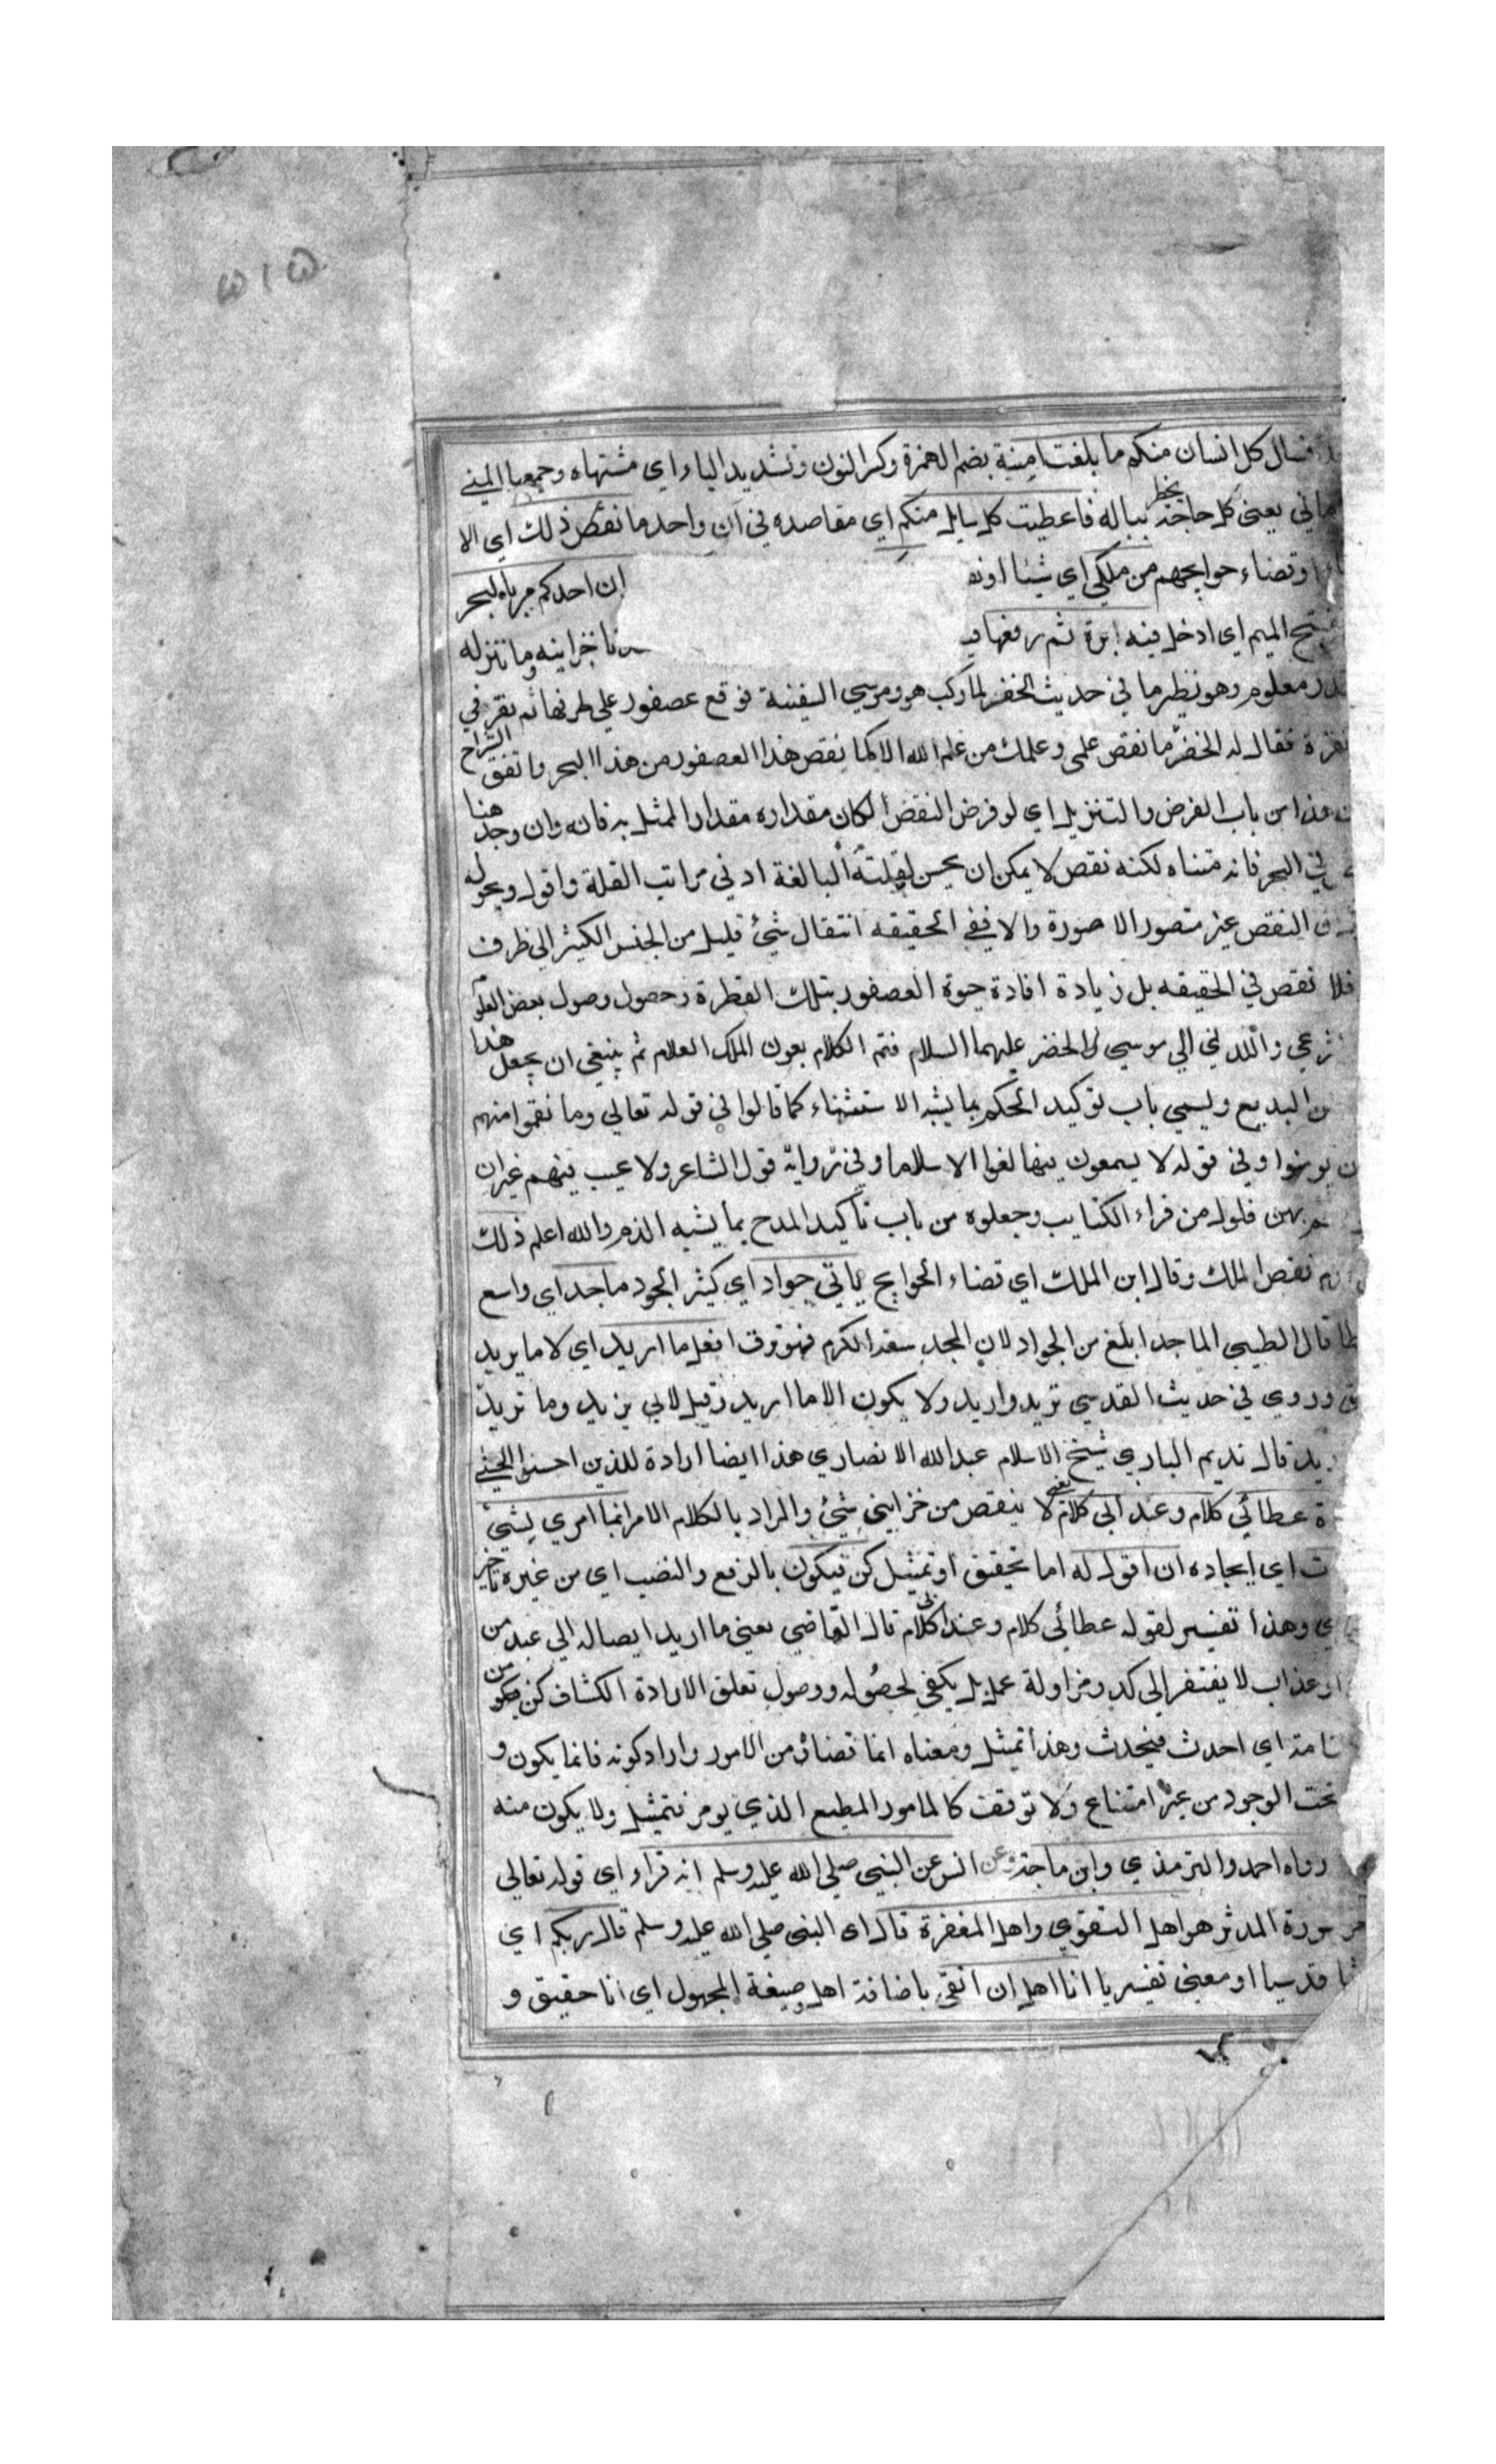 ٥١٥
فسال كل انسان منكم ما بلغت امنيته بضم الهمزة وكسر النون وتشديد الياء اي مشتهاه وجمعها المني
يعني كل حاجة بخطر بباله فاعطيت كل سايل منكم اي مقاصده في آن واحد ما نقص ذلك اي الا
او قضاء حوايجهم من ملكي اي شيئا او نه ان احدكم مر بالبحر
بفتح الميم اي ادخل فيه ابرة ثم رفعها خزاينه وما ننزله
معلوم وهو نظير ما في حديث الخضر لما ركب هو وموسي السفينة فوقع عصفور علي طرفها ثم نقر في
نقرة فقال له الخضر ما نقص علمي وعلمك من علم الله الا كما نقص هذا العصفور من هذا البحر واتفق الشراح
هذا من باب الفرض والتنزيل اي لو فرض النقص لكان مقداره مقدار الممثل به فانه وان وجد هنا
في البحر فانه متناه لكنه نقص لا يمكن ان يحسن لقلته البالغة ادني مراتب القلة واقول وبحوله
النقص غير متصور الا صورة والا ففي الحقيقه انتقال شيء قليل من الجنس الكثير الي ظرف
فلا نقص في الحقيقه بل زيادة افادة حيوة العصفور بتلك القطرة وحصول وصول بعض العلو
واللدني الي موسي والخضر عليهما السلام فتم الكلام بعون الملك العلام ثم ينبغي ان يجعل هذا
من البديع ويسمي باب توكيد الحكم بما يشبه الاستثناء كما قالوا في قوله تعالي وما نقموا منهم
ن يومنوا وفي قوله لا يسمعون فيها لغوا الا سلاما وفي رواية قول الشاعر ولا عيب فيهم غير ان
بهن فلول من قراع الكتايب وجعلوه من باب تأكيد المدح بما يشبه الذم والله اعلم ذلك
نقص الملك وقال ابن الملك اي قضاء الحوايج ياتي جواد اي كثير الجود ماجد اي واسع
قال الطيبي الماجد ابلغ من الجواد لان المجد سعة الكرم فهو ترق افعل ما اريد اي لا ما يريد
وروي في حديث القدسي تريد واريد ولا يكون الا ما اريد وقيل لابي يزيد وما تريد
قال نديم الباري شيخ الاسلام عبد الله الانصاري هذا ايضا ارادة للذين احسنوا الحسني
عطائي كلام وعذابي كلام يعني لا ينقص من خزايني شيء والمراد بالكلام الامر انما امري لشيء
ت اي ايجاده ان اقول له اما تحقيق او تمثيل كن فيكون بالرفع والنصب اي من غير تاخير
وهذا تفسير لقوله عطائي كلام وعذابي كلام قال القاضي يعني ما اريد ايصاله الي عبد من
او عذاب لا يفتقر الي كد ومزاولة عمل بل يكفي لحصوله ووصول تعلق الارادة الكشاف كن فيكون من
تامة اي احدث فيحدث وهذا تمثيل ومعناه انما قضاه من الامور واراد كونه فانما يكون و
تحت الوجود من غير امتناع ولا توقف كالمامور المطيع الذي يومر فتمثيل ولا يكون منه
رواه احمد والترمذي وابن ماجة وعن انس عن النبي صلي الله عليه وسلم انه قراء اي قوله تعالي
سورة المدثر هو اهل التقوي واهل المغفرة قال اي النبي صلي الله عليه وسلم قال ربكم اي
قدسيا او معني تفسيريا انا اهل ان اتقي باضافة اهل وصيغة المجهول اي انا حقيق و